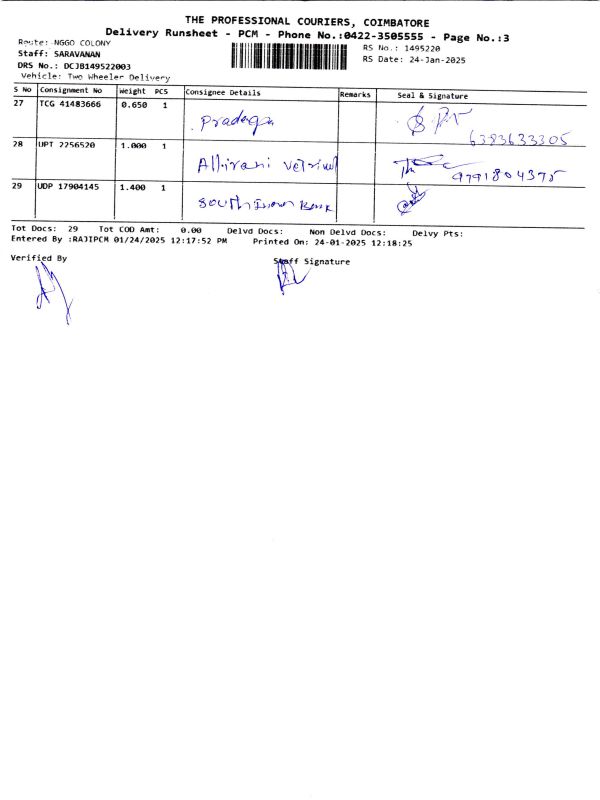 THE PROFESSIONAL COURIERS, COIMBATORE
Delivery Runsheet - PCM - Phone No.:0422-3505555 - Page No.:3
Route: NGGO COLONY
RS No.: 1495220
Staff: SARAVANAN
RS Date: 24-Jan-2025
DRS No.: DCJB149522003
Vehicle: Two Wheeler Delivery
S No Consignment No Weight PCS Consignee Details Remarks Seal & Signature
27 TCG 41483666 0.650 1
6383633305
28 UPT 2256520 1.000 1
9791804375
29 UDP 17904145 1.400 1 South Bank
Tot Docs: 29 Tot COD Amt: 0.00 Delvd Docs: Non Delvd Docs: Delvy Pts:
Entered By :RAJIPCM 01/24/2025 12:17:52 PM Printed On: 24-01-2025 12:18:25
Verified By Staff Signature